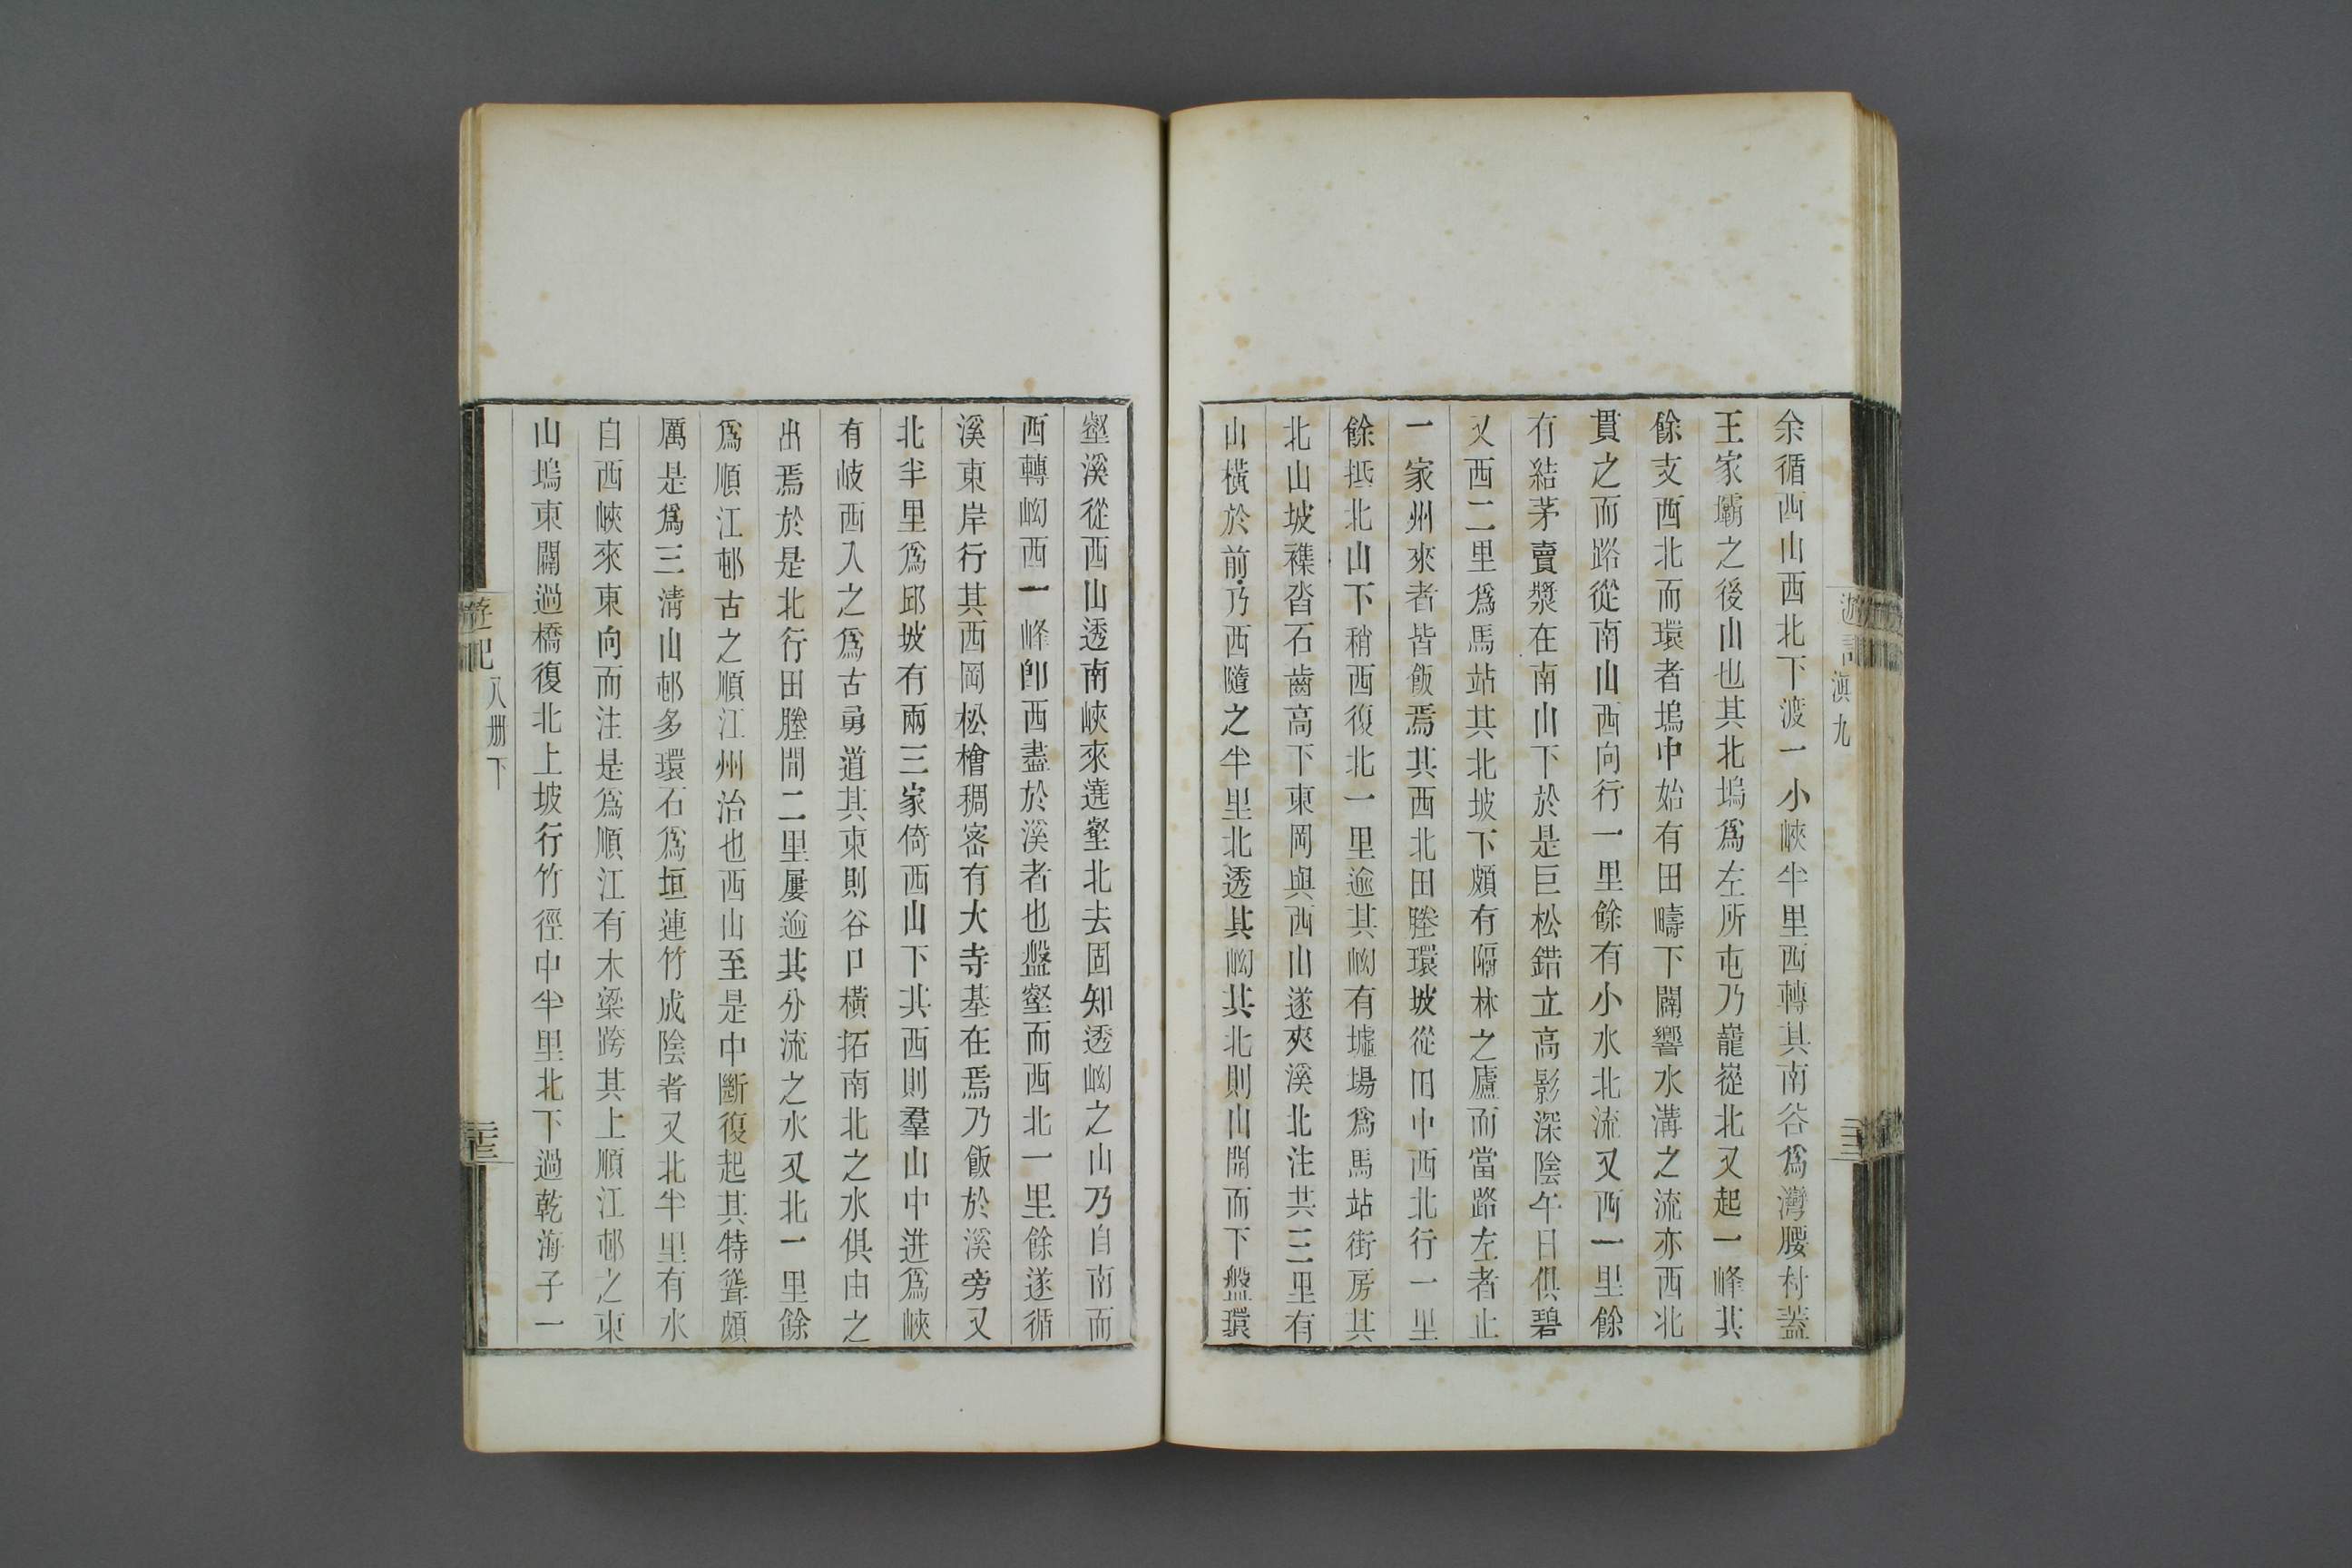 遊記
滇九
余循西山西北下渡一小峽半里西轉其南谷爲灣腰村蓋
王家壩之後山也其北塢爲左所屯乃巃嵸北又起一峰其
餘支西北而環者塢中始有田疇下闢響水溝之流亦西北
貫之而路從南山西向行一里餘有小水北流又西一里餘
有結茅賣漿在南山下於是巨松錯立高影深陰午日俱碧
又西二里爲馬站其北坡下頗有隔林之廬而當路左者止
一家州來者皆飯焉其西北田塍環坡從田中西北行一里
餘抵北山下稍西復北一里逾其岰有墟場爲馬站街房其
北山坡襍沓石齒高下東岡與西山遂夾溪北注共三里有
山橫於前乃西隨之半里北透其岰其北則山開而下盤環
壑溪從西山透南峽來遶壑北去固知透岰之山乃自南而
西轉岰西一峰卽西盡於溪者也盤壑而西北一里餘遂循
溪東岸行其西岡松檜稠密有大寺基在焉乃飯於溪旁又
北半里爲邱坡有兩三家倚西山下其西則羣山中迸爲峽
有岐西入之爲古勇道其東則谷口橫拓南北之水俱由之
出焉於是北行田塍間二里屢逾其分流之水又北一里餘
爲順江邨古之順江州治也西山至是中斷復起其特聳頗
厲是爲三清山邨多環石爲垣連竹成陰者又北半里有水
自西峽來東向而注是爲順江有木梁跨其上順江邨之東
山塢東闢過橋復北上坡行竹徑中半里北下過乾海子一
遊記
八册下